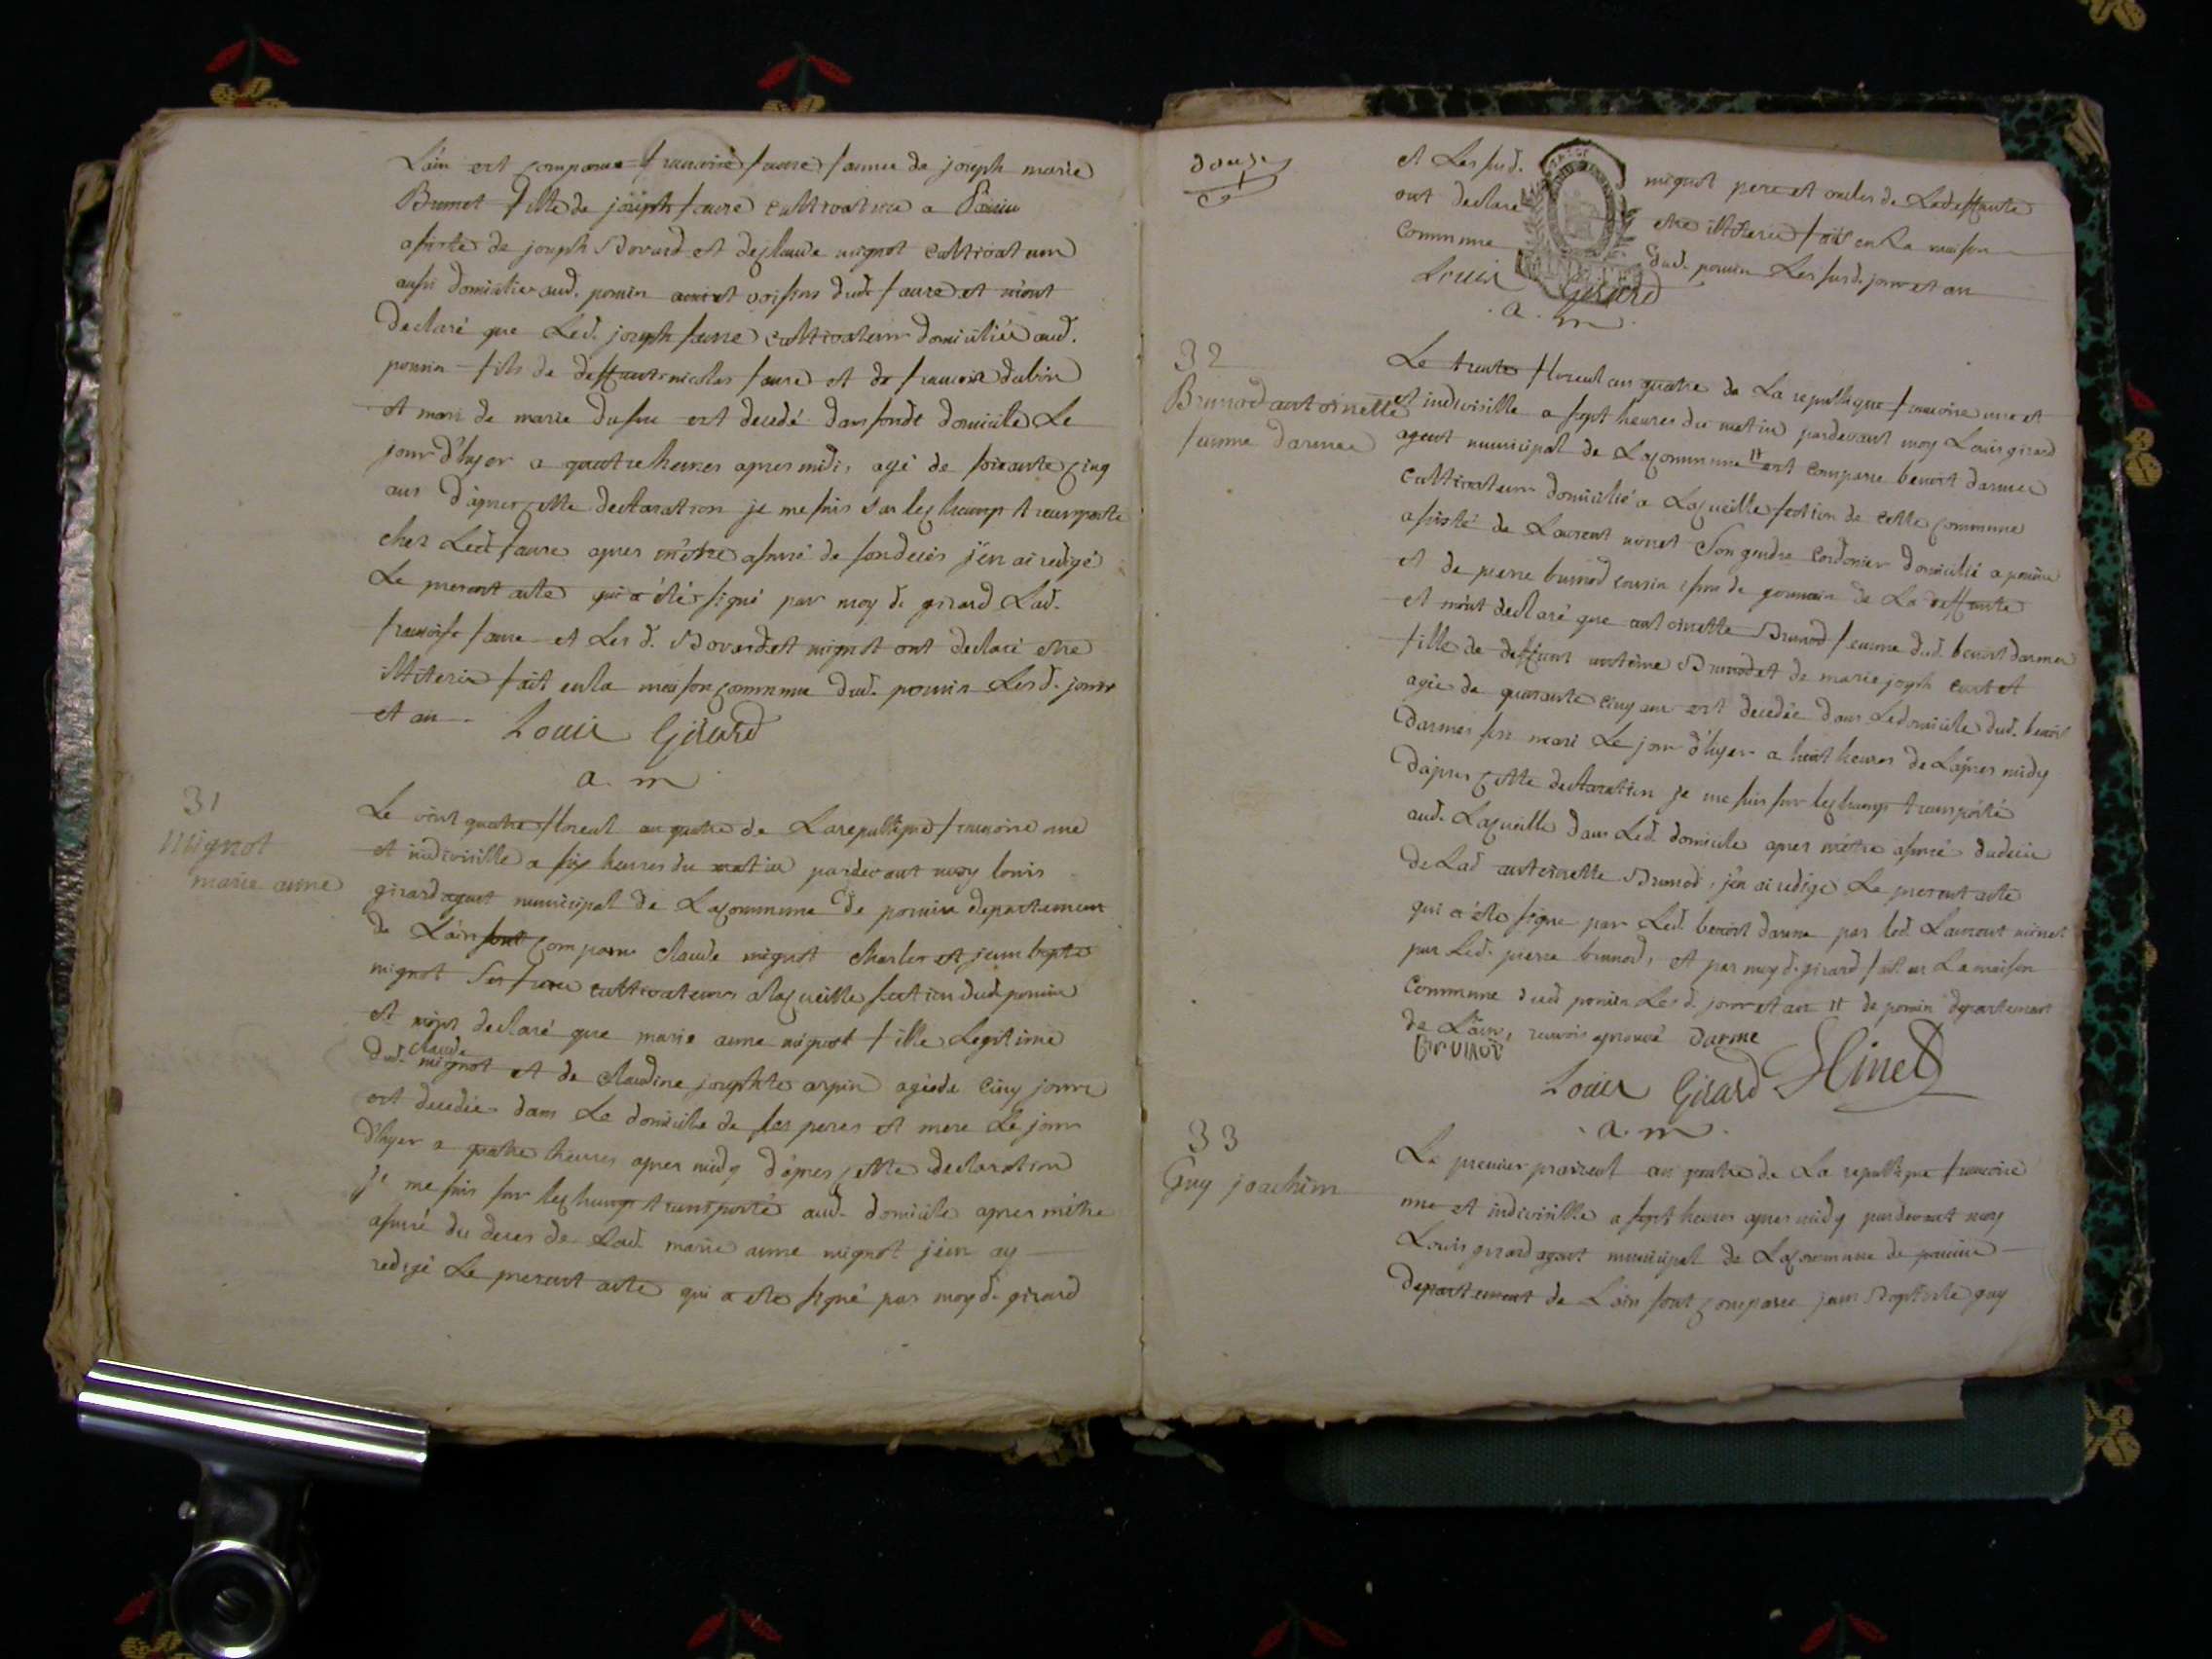 L'ain est comparue francoise faure femme de joseph marie
Brunet fille de joseph faure cultivatrice a Ponin
assisté de joseph Bovard et de claude mignot cultivateurs
aussi domiciliés aud. ponin amis et voisins dud. faure et m'ont
declaré que Led. joseph faure cultivateur domicilié aud.
ponin fils de deffunt nicolas faure et de francoise dubin
et mari de marie dufour est decedé dans sondt domicile Le
jour d'hyer a quatre heures apres midi, agé de soixante cinq
ans d'apres cette declaration je me suis sur le champ transporté
chez Led. faure apres m'etre assuré de son decés j'en ai redigé
Le present acte qui a été signé par moy d. girard Lad.
francoise faure et Les d. Bovard et mignot ont declaré etre
illiteris fait en la maison commune dud. ponin Les d. jour
et an Louis Girard
a. m
31
Mignot
marie anne
Le vint quatre floreal an quatre de La republique francoise une
et indivisille a six heures du matin pardevant moy louis
girard agent municipal de La commune de ponin departement
de L'ain sont comparu claude mignot charles et jean bapte
mignot ses frere cultivateurs a la cueille section dud. ponin
et m'ont declaré que marie anne mignot fille Legitime
dud. claude mignot et de claudine josephte arpin agée de cinq jours
est decedée dans Le domicile de ses peres et mere Le jour
d'hyer a quatre heures apres midy d'apres cette declaration
je me suis sur le champ transporté aud. domicile apres m'etre
assuré du deces de Lad. marie anne mignot j'en ay
redigé Le present acte qui a ete signé par moy d. girard
douze
et Les sus d. mignot pere et oncles de La deffunte
ont declare etre illiteris fait en La maison
commune dud. ponin Les sus d. jour et an
Louis Girard
a. m.
32
Brunod antoinette
femme darmee
Le trente floreal an quatre de La republique francoise une et
et indivisille a sept heures du matin pardevant moy Louis girard
agent municipal de La commune # est comparu benoit darmee
cultivateur domicilié a La cueille section de cette commune
assisté de Laurent minet son gendre cordonier domicilié a ponin
et de pierre brunod cousin issu de germain de La deffunte
et m'ont declaré que antoinette Brunod femme dud. benoit darmee
fille de deffunt antoine Brunod et de marie joseph curtet
agée de quarante cinq ans est decedée dans Le domicile dud. benoit
darmee son mari Le jour d'hyer a huit heures de L'apres midy
D'apres cette declaration je me suis sur le champ transporté
aud. La cueille dans Led. domicile apres m'etre assuré du deces
de Lad. antoinette Brunod, j'en ai redigé Le present acte
qui a été signe par Led. benoit darme par led. Laurent minet
par Led. pierre brunod, et par moy d. girard fait en La maison
commune dud. ponin Les d. jour et an # de ponin departement
de L'ain, renvois aprouvé darme
brunod
Louis Girard Minet
a. m.
33
Guy joachim
Le premier prairial an quatre de La republique francoise
une et indivisille a sept heures apres midy pardevant moy
Louis girard agent municipal de La commune de ponin
departement de L'ain sont comparu jean Baptiste guy